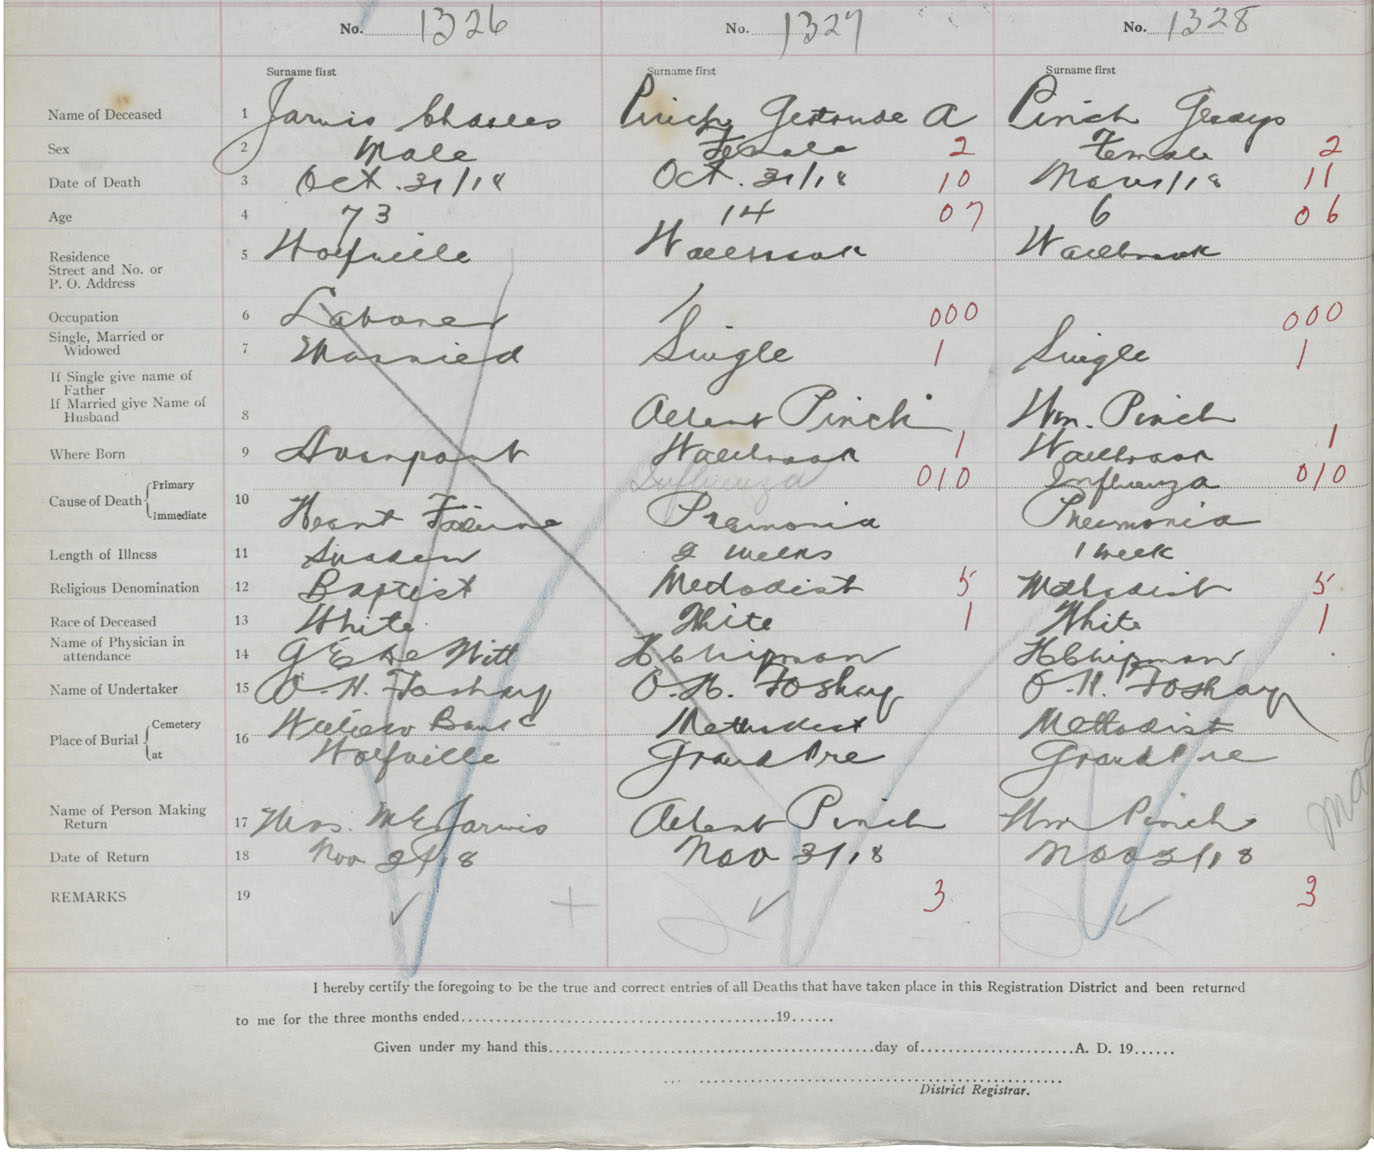 No. 1326 No. 1327 No. 1328
Surname first Surname first Surname first
Name of Deceased 1 Jarvis Charles Pinch Gertrude A Pinch Gladys
Sex 2 Male Female 2 Female 2
Date of Death 3 Oct. 31/18 Oct. 31/18 10 Nov 1/18 11
Age 4 73 14 07 6 06
Residence
Street and No. or
P. O. Address
5 Wolfville Wallbrook Wallbrook
Occupation 6 Laborer 000 000
Single, Married or
Widowed
7 Married Single 1 Single 1
If Single give name of
Father
If Married give Name of
Husband
8 Albert Pinch Wm. Pinch
Where Born 9 Avonport Wallbrook 1 Wallbrook 1
Cause of Death Primary Influenza 010 Influenza 010
10
Immediate Heart Failure Pneumonia Pneumonia
Length of Illness 11 Sudden 2 weeks 1 week
Religious Denomination 12 Baptist Methodist 5 Methodist 5
Race of Deceased 13 White White 1 White 1
Name of Physician in
attendance
14 G E De Witt H Chipman H Chipman
Name of Undertaker 15 O. H. Foshay O. H. Foshay O. H. Foshay
Place of Burial Cemetery 16 Willow Bank Methodist Methodist
at Wolfville Grand Pre Grand Pre
Name of Person Making
Return
17 Mrs. M E Jarvis Albert Pinch Wm Pinch
Date of Return 18 Nov 2/18 Nov 3/18 Nov 3/18
REMARKS 19 3 3
I hereby certify the foregoing to be the true and correct entries of all Deaths that have taken place in this Registration District and been returned
to me for the three months ended 19
Given under my hand this day of A. D. 19
District Registrar.